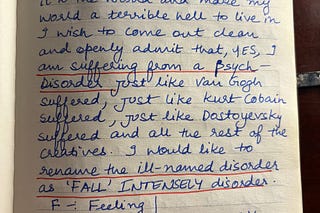 world a terrible hell to live in
I wish to come out clean
and openly admit that, YES, I
am suffering from a Psych-
Disorder just like Van Gogh
suffered, just like Kurt Cobain
suffered, just like Dostoyevsky
suffered and all the rest of the
creatives. I would like to
rename the ill-named disorder
as 'FALL' INTENSELY disorder.
F - Feeling